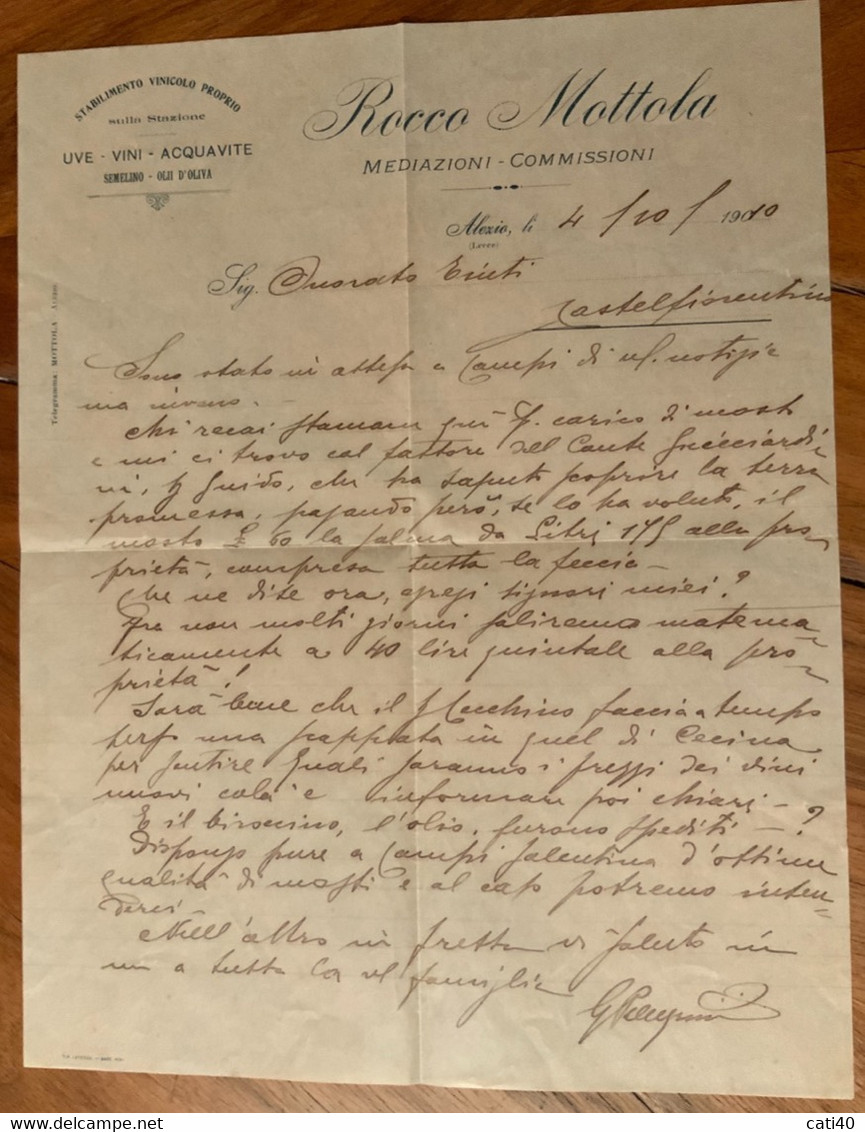 STABILIMENTO VINICOLO PROPRIO
sulla Stazione
UVE - VINI - ACQUAVITE
SEMELINO - OLII D'OLIVA
Rocco Mottola
MEDIAZIONI - COMMISSIONI
Alezio, li 4/10/1910
(Lecce)
Sig. Onorato
Castelfiorentino
Telegramma: MOTTOLA Alezio
Sono stato in attesa a Campi di vs. notizie
ma invano. -
Mi recai stamane qui p. carico di mosti
e mi ci trovo col fattore del Conte Guicciardi=
ni, Guido, che ha saputo scoprire la terra
promessa, pagando però, se lo ha voluto, il
mosto £ 60 la salma da Litri 175 alla pro=
prietà, compresa tutta la feccia -
Che ne dite ora, egregi signori miei?
Fra non molti giorni saliremo matema=
ticamente a 40 lire quintale alla pro=
prietà!
Sarà bene che il faccia a tempo
perso una in quel di Cecina
per sentire quali saranno i prezzi dei vini
nuovi colà e informare poi chiari -
E il biroccino, l'olio, furono spediti - ?
Dispongo pure a Campi Salentina d'ottima
qualità di mosti e al caso potremo inten=
derci -
Null'altro in fretta vi saluto in
un a tutta la vs famiglia
G Pellegrini
cati40